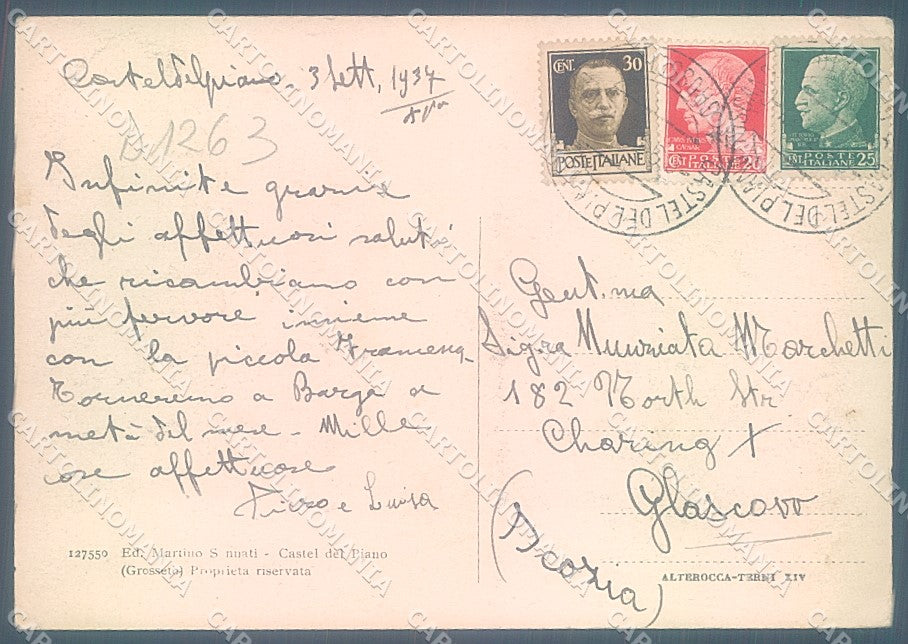 Casteldelpiano 3 Sett, 1937
XV
D1263
Infinite grazie
degli affettuosi saluti
che ricambiamo con
più fervore insieme
con la piccola Franca
Torneremo a Barga a
metà del mese - Mille
cose affettuose
Piero e Luisa
127550 Ed. Martino S nnati - Castel del Piano
(Grosseto) Proprietà riservata
CENT. 30
POSTE ITALIANE
CENT POSTE 20
ITALIANE
CENT POSTE 25
ITALIANE
CASTEL DEL PIANO
CASTEL DEL PIANO
Gent.ma
Sig.ra Nunziata Marchetti
182 North Str
Charing X
Glascow
(Scozia)
ALTEROCCA-TERNI XIV
CARTOLINOMANIA